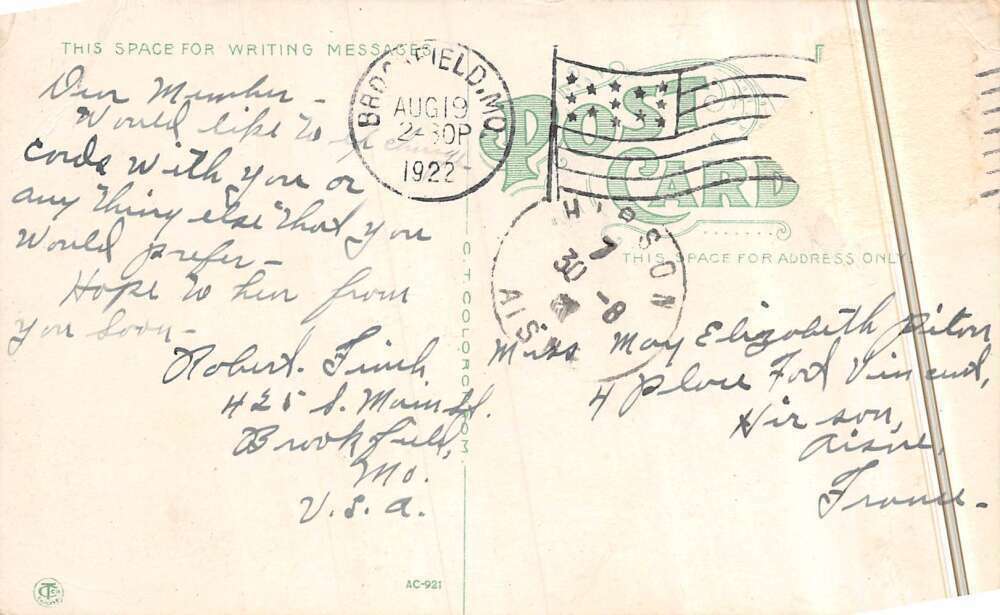 THIS SPACE FOR WRITING MESSAGES
Dear Member -
Would like to exchange
cards with you or
any thing else that you
would prefer -
Hope to hear from
you soon -
Robert Finch
425 S. Main St.
Brookfield,
Mo.
U.S.A.
BROOKFIELD, MO.
AUG 19
2-30P
1922
POST
CARD
HIRSON
AISNE
7
30 -8
THIS SPACE FOR ADDRESS ONLY
Miss May Elizabeth Piton
4 place Fod Vincend,
Hirson,
Aisne,
France -
C.T. COLORCHROM
AC-921